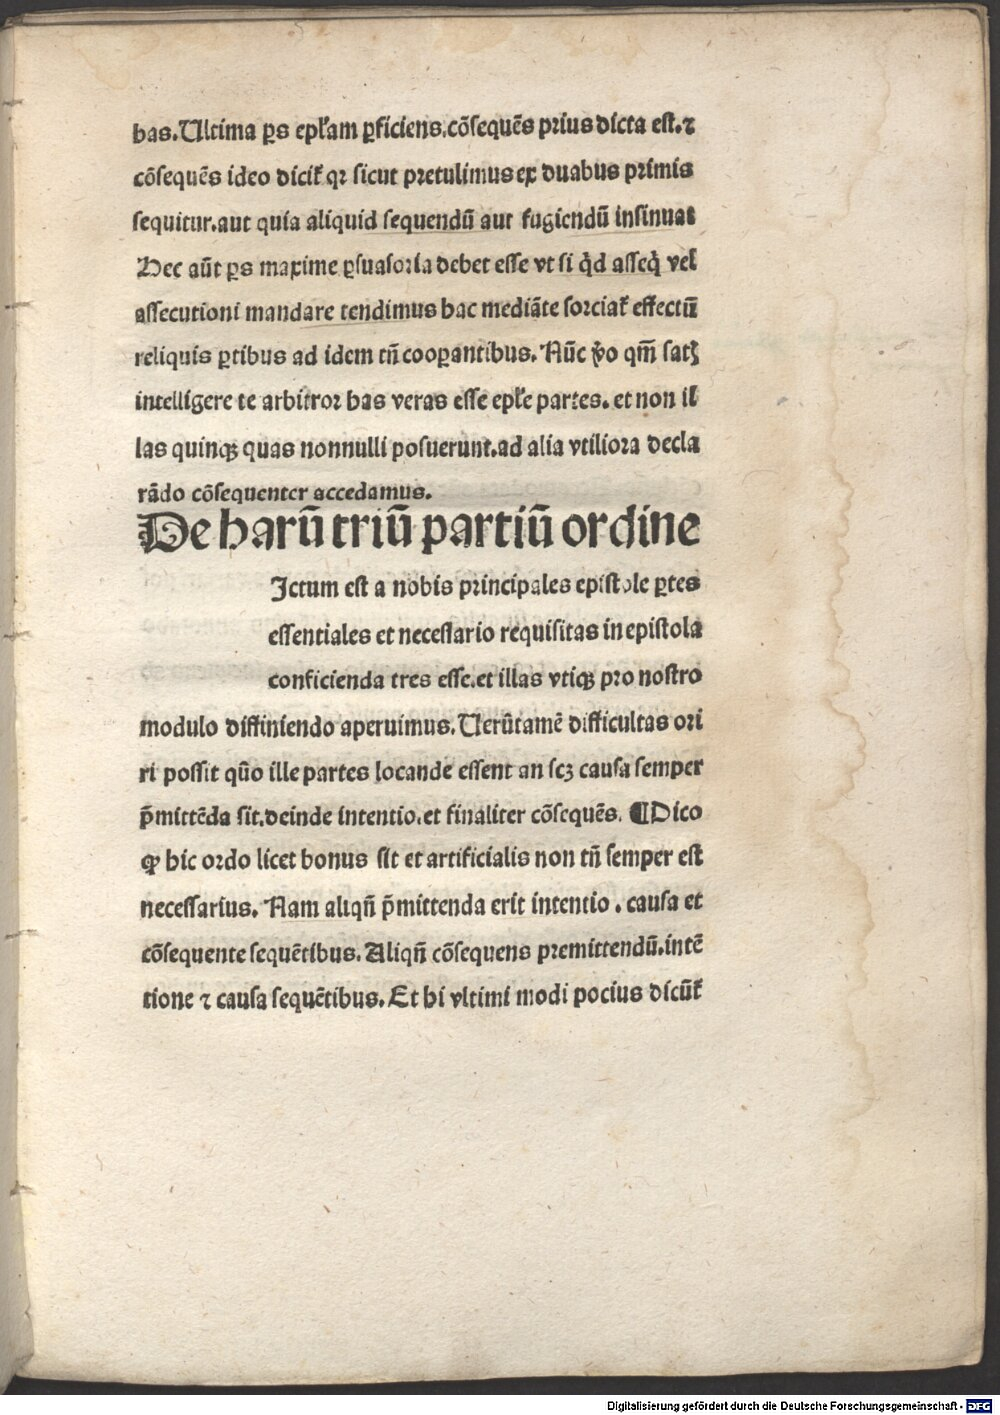 bas.Ultima ꝑs epl̃am ꝑficiens.cõsequẽs prius dicta est.⁊
cõsequẽs ideo dicit̃ qꝛ sicut pretulimus ex duabus primis
sequitur.aut quia aliquid sequendũ aut fugiendũ insinuat
Hec aũt ꝑs maxime ꝑsuasoria debet esse vt si qd̃ asseq̃ vel
assecutioni mandare tendimus hac mediãte sorciat̃ effectũ
reliquis ꝑtibus ad idem tñ cooꝑantibus. Nũc ṽo qm̃ satꝫ
intelligere te arbitror has veras esse epl̃e partes. et non il
las quinqꝫ quas nonnulli posuerunt.ad alia vtiliora decla
rãdo cõsequenter accedamus.
De harũ triũ partiũ ordine
Ictum est a nobis principales epistole ꝑtes
essentiales et necessario requisitas in epistola
conficienda tres esse.et illas vtiqꝫ pro nostro
modulo diffiniendo aperuimus.Uerũtamẽ difficultas ori
ri possit quõ ille partes locande essent an scꝫ causa semper
p̃mittẽda sit.deinde intentio.et finaliter cõsequẽs. ¶Dico
ꝙ hic ordo licet bonus sit et artificialis non tñ semper est
necessarius. Nam aliqñ p̃mittenda erit intentio . causa et
cõsequente sequẽtibus. Aliqñ cõsequens premittendũ.intẽ
tione ⁊ causa sequẽtibus. Et hi vltimi modi pocius dicũt̃
Digitalisierung gefördert durch die Deutsche Forschungsgemeinschaft - DFG